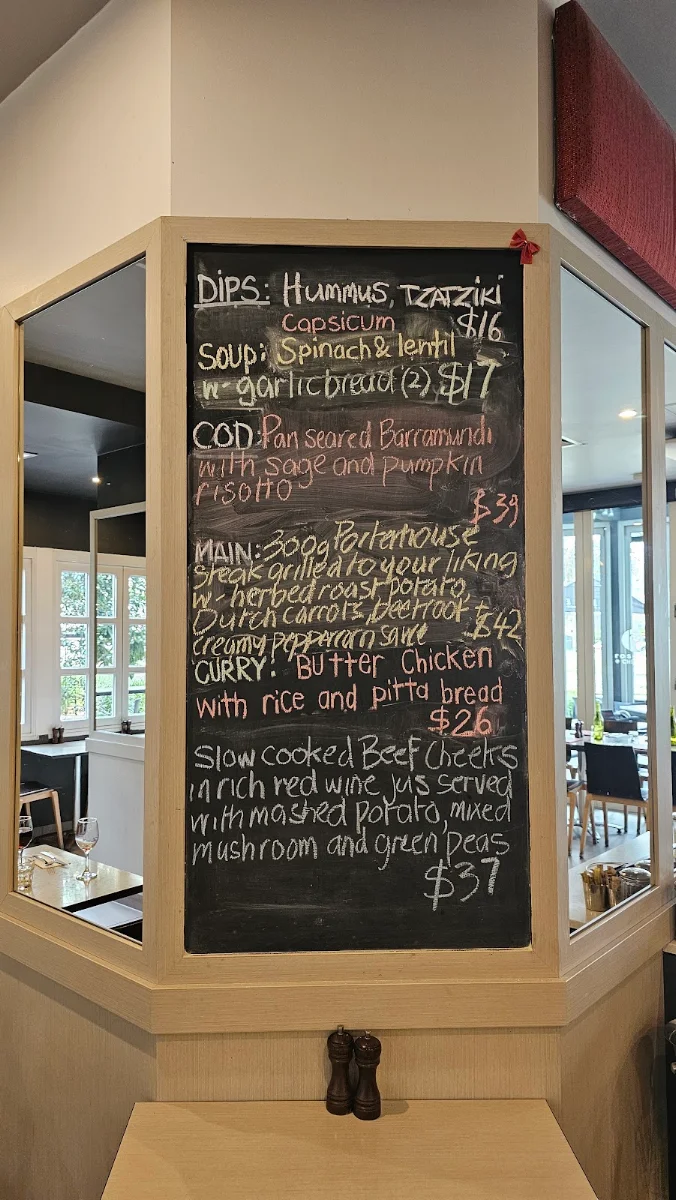 DIPS: Hummus, TZATZiki
Capsicum $16
SOUP: Spinach & lentil
w- garlic bread (2) $17
COD: Pan seared Barramundi
with sage and pumpkin
risotto
$39
MAIN: 300g Porterhouse
Steak grilled to your liking
w- herbed roast potato,
Dutch carrots, beetroot +
creamy peppercorn sauce $42
CURRY: BUTTer Chicken
with rice and pitta bread
$26
Slow cooked Beef Cheeks
in rich red wine jus served
with mashed potato, mixed
mushroom and green peas
$37